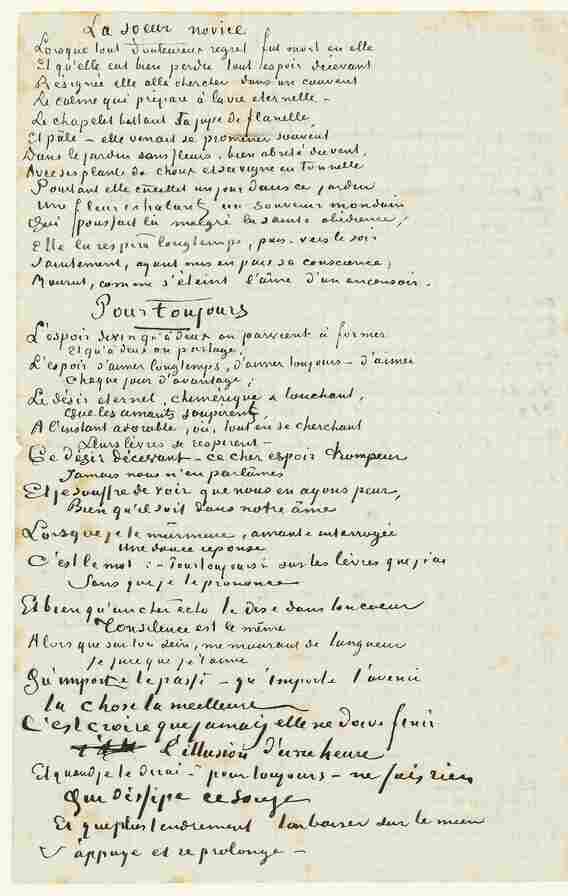 La soeur novice
Lorsque tout douteureux regret fut mort en elle
Et qu'elle eut bien perdu tout espoir décevant
Résignée elle alla chercher dans un couvent
Le calme qui prépare à la vie eternelle -
Le chapelet battant sa jupe de flanelle,
Et pâle - elle venait se promener souvent
Dans le jardin sans fleurs, bien abrité du vent,
Avec ses plants de choux et sa vigne en tonnelle
Pourtant elle cueillit un jour dans ce jardin
Une fleur exhalant un souvenir mondain
Qui poussait là malgré la sainte obédience,
Elle la respira longtemps, puis - vers le soir
Saintement, ayant mis en paix sa conscience,
Mourut, comme s'éteint l'âme d'un encensoir.
Pour toujours
L'espoir divin qu'à deux on parvient à former
Et qu'à deux on partage,
L'espoir d'aimer longtemps, d'aimer toujours - d'aimer
Chaque jour d'avantage;
Le désir eternel, chimérique & touchant,
Que les amants soupirent,
A l'instant adorable, où, tout en se cherchant
Leurs lèvres se respirent -
Ce désir décevant - ce cher espoir trompeur
Jamais nous n'en parlâmes
Et je souffre de voir que nous en ayons peur,
Bien qu'il soit dans notre âme
Lorsque je te murmure, amante interrogée
Une douce réponse
C'est le mot : - pour toujours - sur les lèvres que j'ai
Sans que je le prononce
Et bien qu'un cher écho le dise dans ton coeur
Ton silence est le même
Alors que sur ton sein, me mourant de langueur
Je jure que je t'aime
Qu'importe le passé - qu'importe l'avenir
la chose la meilleure
C'est croire que jamais elle ne doive finir
l'illusion d'une heure
Et quand je te dirai - pour toujours - ne fais rien
Qui dissipe ce songe
Et que plus tendrement ton baiser sur le mien
S'appuye et se prolonge -